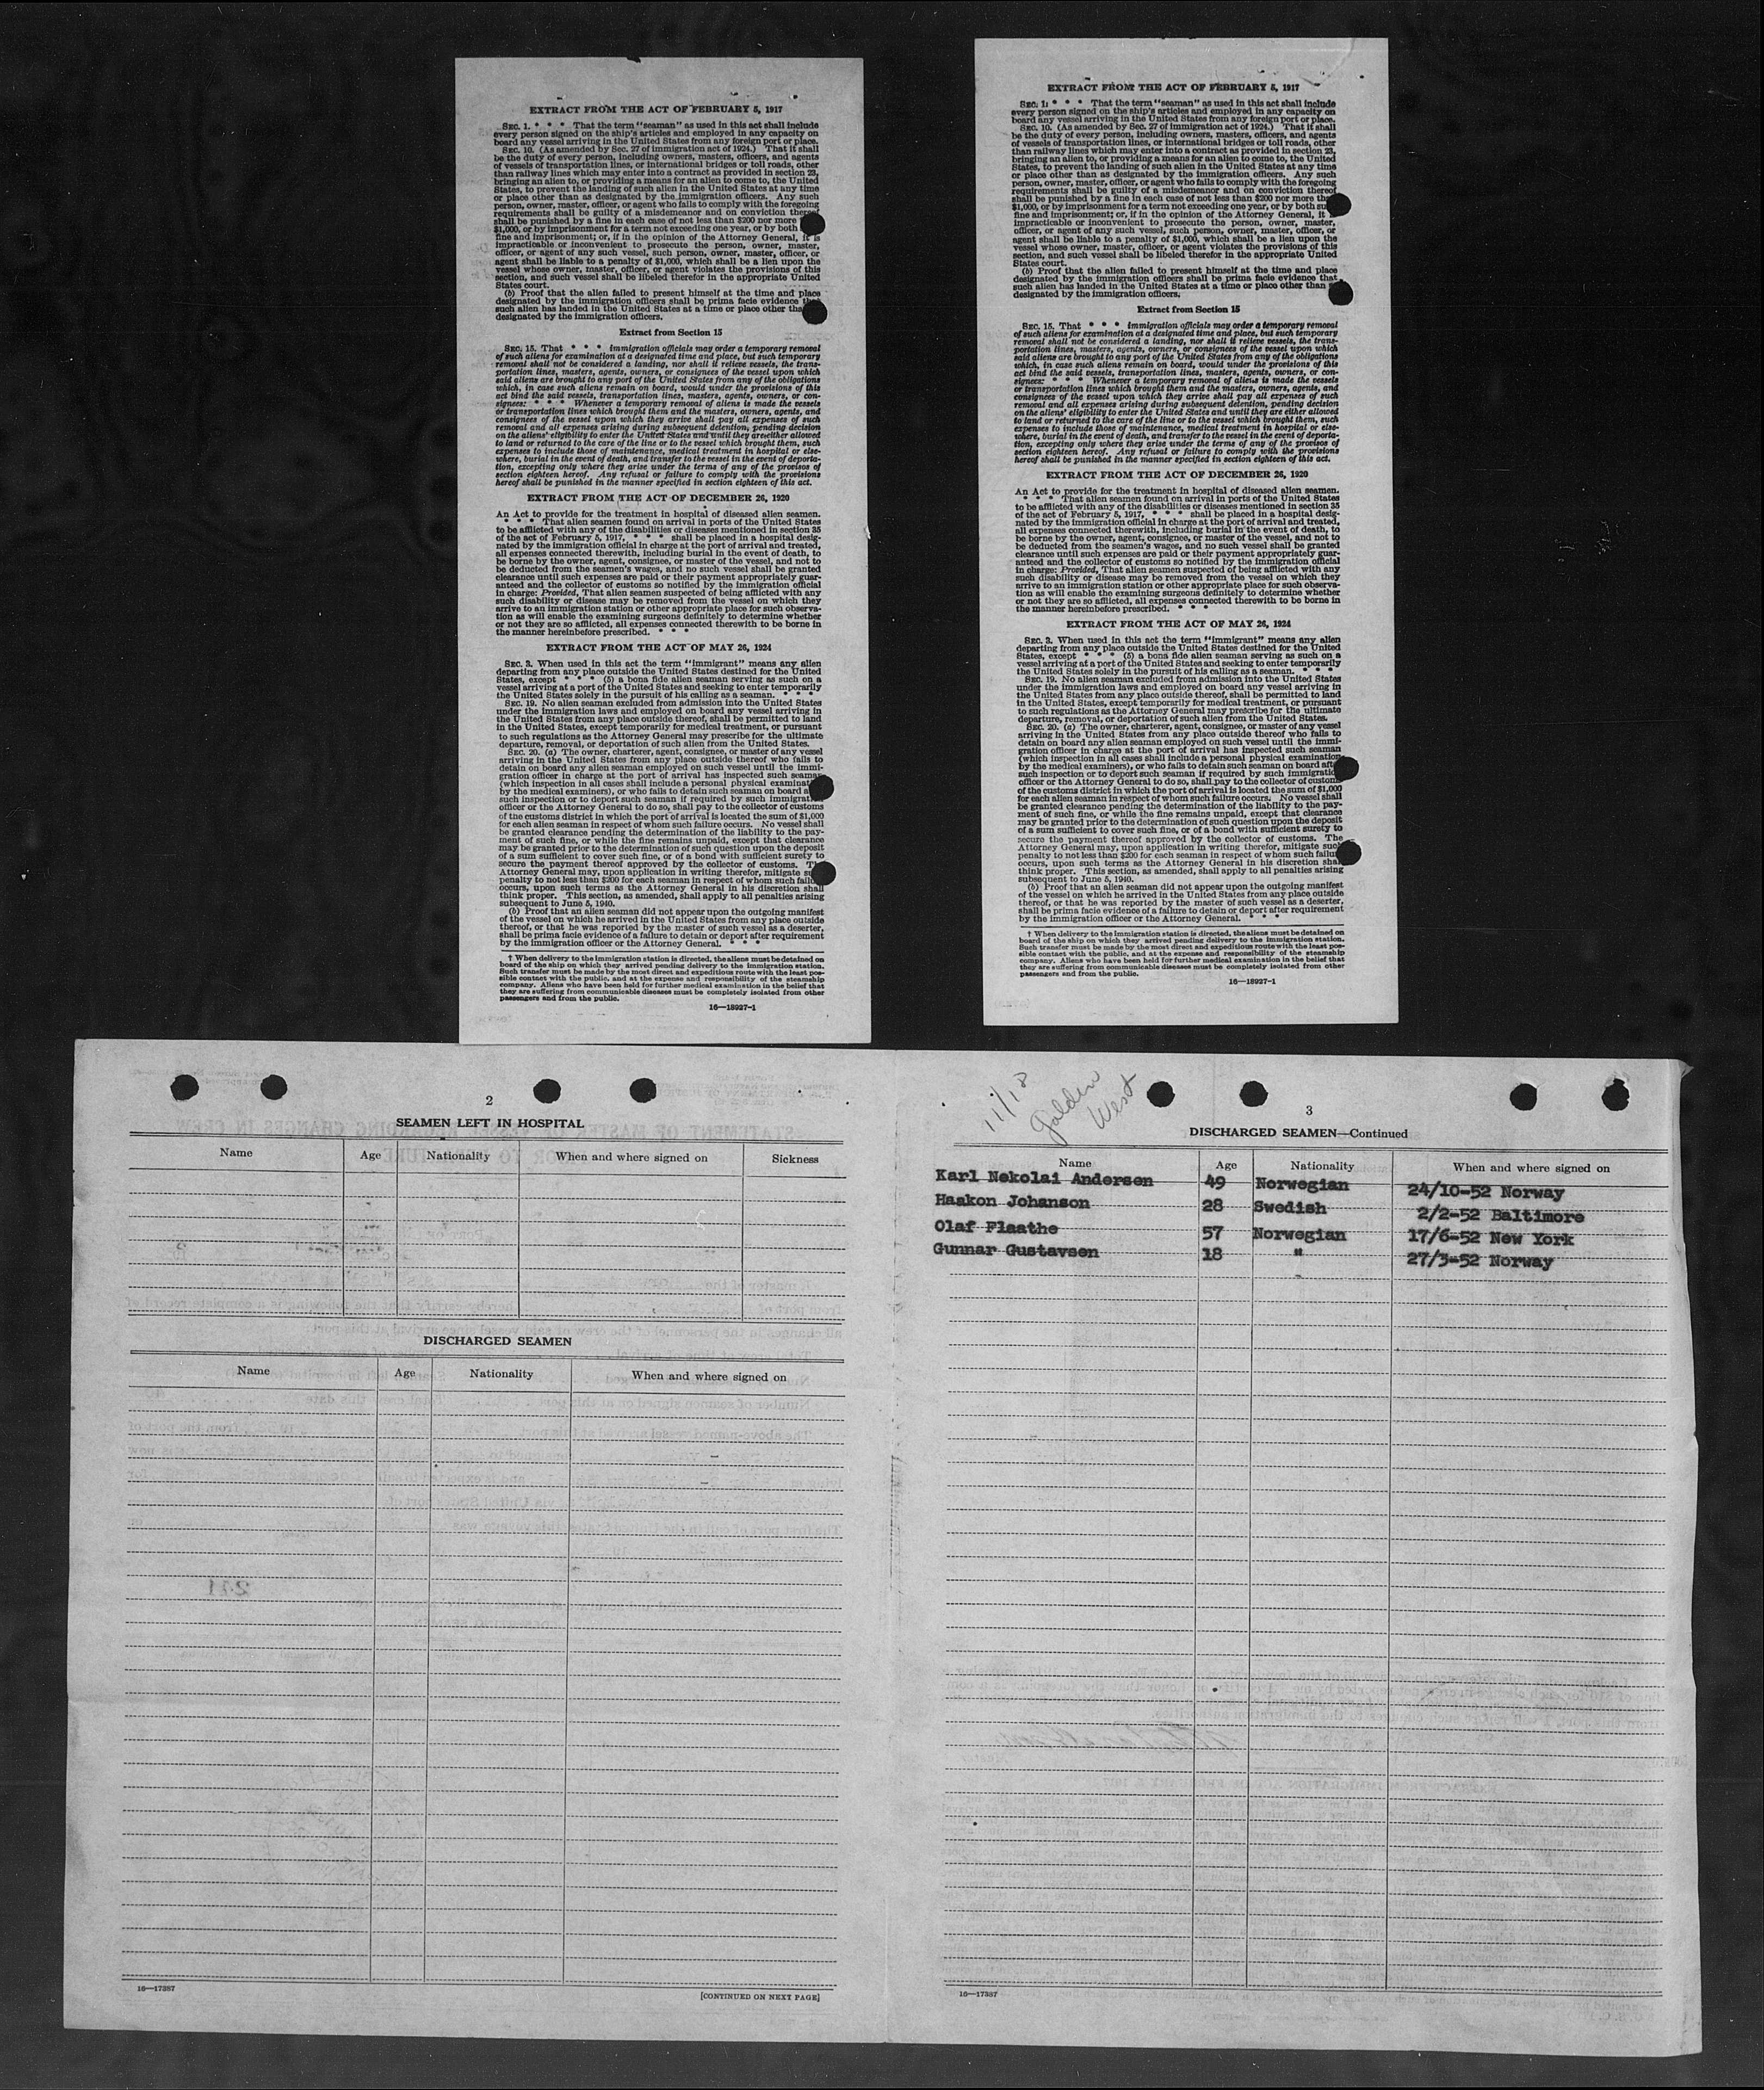 EXTRACT FROM THE ACT OF FEBRUARY 5, 1917
SEC. 1. * * * That the term “seaman” as used in this act shall include
every person signed on the ship's articles and employed in any capacity on
board any vessel arriving in the United States from any foreign port or place.
SEC. 10. (As amended by Sec. 27 of immigration act of 1924.) That it shall
be the duty of every person, including owners, masters, officers, and agents
of vessels of transportation lines, or international bridges or toll roads, other
than railway lines which may enter into a contract as provided in section 23,
bringing an alien to, or providing a means for an alien to come to, the United
States, to prevent the landing of such alien in the United States at any time
or place other than as designated by the immigration officers. Any such
person, owner, master, officer, or agent who fails to comply with the foregoing
requirements shall be guilty of a misdemeanor and on conviction thereof
shall be punished by a fine in each case of not less than $200 nor more
$1,000, or by imprisonment for a term not exceeding one year, or by both
fine and imprisonment; or, if in the opinion of the Attorney General, it is
impracticable or inconvenient to prosecute the person, owner, master,
officer, or agent of any such vessel, such person, owner, master, officer, or
agent shall be liable to a penalty of $1,000, which shall be a lien upon the
vessel whose owner, master, officer, or agent violates the provisions of this
section, and such vessel shall be libeled therefor in the appropriate United
States court.
(b) Proof that the alien failed to present himself at the time and place
designated by the immigration officers shall be prima facie evidence that
such alien has landed in the United States at a time or place other than
designated by the immigration officers.
Extract from Section 15
SEC. 15. That * * * immigration officials may order a temporary removal
of such aliens for examination at a designated time and place, but such temporary
removal shall not be considered a landing, nor shall it relieve vessels, the trans-
portation lines, masters, agents, owners, or consignees of the vessel upon which
said aliens are brought to any port of the United States from any of the obligations
which, in case such aliens remain on board, would under the provisions of this
act bind the said vessels, transportation lines, masters, agents, owners, or con-
signees: * * * Whenever a temporary removal of aliens is made the vessels
or transportation lines which brought them and the masters, owners, agents, and
consignees of the vessel upon which they arrive shall pay all expenses of such
removal and all expenses arising during subsequent detention, pending decision
on the aliens' eligibility to enter the United States and until they are either allowed
to land or returned to the care of the line or to the vessel which brought them, such
expenses to include those of maintenance, medical treatment in hospital or else-
where, burial in the event of death, and transfer to the vessel in the event of deporta-
tion, excepting only where they arise under the terms of any of the provisos of
section eighteen hereof. Any refusal or failure to comply with the provisions
hereof shall be punished in the manner specified in section eighteen of this act.
EXTRACT FROM THE ACT OF DECEMBER 26, 1920
An Act to provide for the treatment in hospital of diseased alien seamen.
* * * That alien seamen found on arrival in ports of the United States
to be afflicted with any of the disabilities or diseases mentioned in section 35
of the act of February 5, 1917, * * * shall be placed in a hospital desig-
nated by the immigration official in charge at the port of arrival and treated,
all expenses connected therewith, including burial in the event of death, to
be borne by the owner, agent, consignee, or master of the vessel, and not to
be deducted from the seamen's wages, and no such vessel shall be granted
clearance until such expenses are paid or their payment appropriately guar-
anteed and the collector of customs so notified by the immigration official
in charge: Provided, That alien seamen suspected of being afflicted with any
such disability or disease may be removed from the vessel on which they
arrive to an immigration station or other appropriate place for such observa-
tion as will enable the examining surgeons definitely to determine whether
or not they are so afflicted, all expenses connected therewith to be borne in
the manner hereinbefore prescribed. * * *
EXTRACT FROM THE ACT OF MAY 26, 1924
SEC. 3. When used in this act the term “immigrant” means any alien
departing from any place outside the United States destined for the United
States, except * * * (5) a bona fide alien seaman serving as such on a
vessel arriving at a port of the United States and seeking to enter temporarily
the United States solely in the pursuit of his calling as a seaman. * * *
SEC. 19. No alien seaman excluded from admission into the United States
under the immigration laws and employed on board any vessel arriving in
the United States from any place outside thereof, shall be permitted to land
in the United States, except temporarily for medical treatment, or pursuant
to such regulations as the Attorney General may prescribe for the ultimate
departure, removal, or deportation of such alien from the United States.
SEC. 20. (a) The owner, charterer, agent, consignee, or master of any vessel
arriving in the United States from any place outside thereof who fails to
detain on board any alien seaman employed on such vessel until the immi-
gration officer in charge at the port of arrival has inspected such seaman
(which inspection in all cases shall include a personal physical examination
by the medical examiners), or who fails to detain such seaman on board
such inspection or to deport such seaman if required by such immigration
officer or the Attorney General to do so, shall pay to the collector of customs
of the customs district in which the port of arrival is located the sum of $1,000
for each alien seaman in respect of whom such failure occurs. No vessel shall
be granted clearance pending the determination of the liability to the pay-
ment of such fine, or while the fine remains unpaid, except that clearance
may be granted prior to the determination of such question upon the deposit
of a sum sufficient to cover such fine, or of a bond with sufficient surety to
secure the payment thereof approved by the collector of customs. The
Attorney General may, upon application in writing therefor, mitigate such
penalty to not less than $200 for each seaman in respect of whom such failure
occurs, upon such terms as the Attorney General in his discretion shall
think proper. This section, as amended, shall apply to all penalties arising
subsequent to June 5, 1940.
(b) Proof that an alien seaman did not appear upon the outgoing manifest
of the vessel on which he arrived in the United States from any place outside
thereof, or that he was reported by the master of such vessel as a deserter,
shall be prima facie evidence of a failure to detain or deport after requirement
by the immigration officer or the Attorney General. * * *
† When delivery to the immigration station is directed, the aliens must be detained on
board of the ship on which they arrived pending delivery to the immigration station.
Such transfer must be made by the most direct and expeditious route with the least pos-
sible contact with the public, and at the expense and responsibility of the steamship
company. Aliens who have been held for further medical examination in the belief that
they are suffering from communicable diseases must be completely isolated from other
passengers and from the public.
16—18927-1
EXTRACT FROM THE ACT OF FEBRUARY 5, 1917
SEC. 1. * * * That the term “seaman” as used in this act shall include
every person signed on the ship's articles and employed in any capacity on
board any vessel arriving in the United States from any foreign port or place.
SEC. 10. (As amended by Sec. 27 of immigration act of 1924.) That it shall
be the duty of every person, including owners, masters, officers, and agents
of vessels of transportation lines, or international bridges or toll roads, other
than railway lines which may enter into a contract as provided in section 23,
bringing an alien to, or providing a means for an alien to come to, the United
States, to prevent the landing of such alien in the United States at any time
or place other than as designated by the immigration officers. Any such
person, owner, master, officer, or agent who fails to comply with the foregoing
requirements shall be guilty of a misdemeanor and on conviction thereof
shall be punished by a fine in each case of not less than $200 nor more than
$1,000, or by imprisonment for a term not exceeding one year, or by both such
fine and imprisonment; or, if in the opinion of the Attorney General, it
impracticable or inconvenient to prosecute the person, owner, master,
officer, or agent of any such vessel, such person, owner, master, officer, or
agent shall be liable to a penalty of $1,000, which shall be a lien upon the
vessel whose owner, master, officer, or agent violates the provisions of this
section, and such vessel shall be libeled therefor in the appropriate United
States court.
(b) Proof that the alien failed to present himself at the time and place
designated by the immigration officers shall be prima facie evidence that
such alien has landed in the United States at a time or place other than
designated by the immigration officers.
Extract from Section 15
SEC. 15. That * * * immigration officials may order a temporary removal
of such aliens for examination at a designated time and place, but such temporary
removal shall not be considered a landing, nor shall it relieve vessels, the trans-
portation lines, masters, agents, owners, or consignees of the vessel upon which
said aliens are brought to any port of the United States from any of the obligations
which, in case such aliens remain on board, would under the provisions of this
act bind the said vessels, transportation lines, masters, agents, owners, or con-
signees: * * * Whenever a temporary removal of aliens is made the vessels
or transportation lines which brought them and the masters, owners, agents, and
consignees of the vessel upon which they arrive shall pay all expenses of such
removal and all expenses arising during subsequent detention, pending decision
on the aliens' eligibility to enter the United States and until they are either allowed
to land or returned to the care of the line or to the vessel which brought them, such
expenses to include those of maintenance, medical treatment in hospital or else-
where, burial in the event of death, and transfer to the vessel in the event of deporta-
tion, excepting only where they arise under the terms of any of the provisos of
section eighteen hereof. Any refusal or failure to comply with the provisions
hereof shall be punished in the manner specified in section eighteen of this act.
EXTRACT FROM THE ACT OF DECEMBER 26, 1920
An Act to provide for the treatment in hospital of diseased alien seamen.
* * * That alien seamen found on arrival in ports of the United States
to be afflicted with any of the disabilities or diseases mentioned in section 35
of the act of February 5, 1917, * * * shall be placed in a hospital desig-
nated by the immigration official in charge at the port of arrival and treated,
all expenses connected therewith, including burial in the event of death, to
be borne by the owner, agent, consignee, or master of the vessel, and not to
be deducted from the seamen's wages, and no such vessel shall be granted
clearance until such expenses are paid or their payment appropriately guar-
anteed and the collector of customs so notified by the immigration official
in charge: Provided, That alien seamen suspected of being afflicted with any
such disability or disease may be removed from the vessel on which they
arrive to an immigration station or other appropriate place for such observa-
tion as will enable the examining surgeons definitely to determine whether
or not they are so afflicted, all expenses connected therewith to be borne in
the manner hereinbefore prescribed. * * *
EXTRACT FROM THE ACT OF MAY 26, 1924
SEC. 3. When used in this act the term “immigrant” means any alien
departing from any place outside the United States destined for the United
States, except * * * (5) a bona fide alien seaman serving as such on a
vessel arriving at a port of the United States and seeking to enter temporarily
the United States solely in the pursuit of his calling as a seaman. * * *
SEC. 19. No alien seaman excluded from admission into the United States
under the immigration laws and employed on board any vessel arriving in
the United States from any place outside thereof, shall be permitted to land
in the United States, except temporarily for medical treatment, or pursuant
to such regulations as the Attorney General may prescribe for the ultimate
departure, removal, or deportation of such alien from the United States.
SEC. 20. (a) The owner, charterer, agent, consignee, or master of any vessel
arriving in the United States from any place outside thereof who fails to
detain on board any alien seaman employed on such vessel until the immi-
gration officer in charge at the port of arrival has inspected such seaman
(which inspection in all cases shall include a personal physical examination
by the medical examiners), or who fails to detain such seaman on board after
such inspection or to deport such seaman if required by such immigration
officer or the Attorney General to do so, shall pay to the collector of customs
of the customs district in which the port of arrival is located the sum of $1,000
for each alien seaman in respect of whom such failure occurs. No vessel shall
be granted clearance pending the determination of the liability to the pay-
ment of such fine, or while the fine remains unpaid, except that clearance
may be granted prior to the determination of such question upon the deposit
of a sum sufficient to cover such fine, or of a bond with sufficient surety to
secure the payment thereof approved by the collector of customs. The
Attorney General may, upon application in writing therefor, mitigate such
penalty to not less than $200 for each seaman in respect of whom such failure
occurs, upon such terms as the Attorney General in his discretion shall
think proper. This section, as amended, shall apply to all penalties arising
subsequent to June 5, 1940.
(b) Proof that an alien seaman did not appear upon the outgoing manifest
of the vessel on which he arrived in the United States from any place outside
thereof, or that he was reported by the master of such vessel as a deserter,
shall be prima facie evidence of a failure to detain or deport after requirement
by the immigration officer or the Attorney General. * * *
† When delivery to the immigration station is directed, the aliens must be detained on
board of the ship on which they arrived pending delivery to the immigration station.
Such transfer must be made by the most direct and expeditious route with the least pos-
sible contact with the public, and at the expense and responsibility of the steamship
company. Aliens who have been held for further medical examination in the belief that
they are suffering from communicable diseases must be completely isolated from other
passengers and from the public.
16—18927-1
2
SEAMEN LEFT IN HOSPITAL
Name Age Nationality When and where signed on Sickness
DISCHARGED SEAMEN
Name Age Nationality When and where signed on
16—17387
[CONTINUED ON NEXT PAGE]
11/18
Golden
West
3
DISCHARGED SEAMEN—Continued
Name Age Nationality When and where signed on
Karl Nekolai Andersen 49 Norwegian 24/10-52 Norway
Haakon Johanson 28 Swedish 2/2-52 Baltimore
Olaf Flaathe 57 Norwegian 17/6-52 New York
Gunnar Gustavsen 18 " 27/3-52 Norway
16—17387